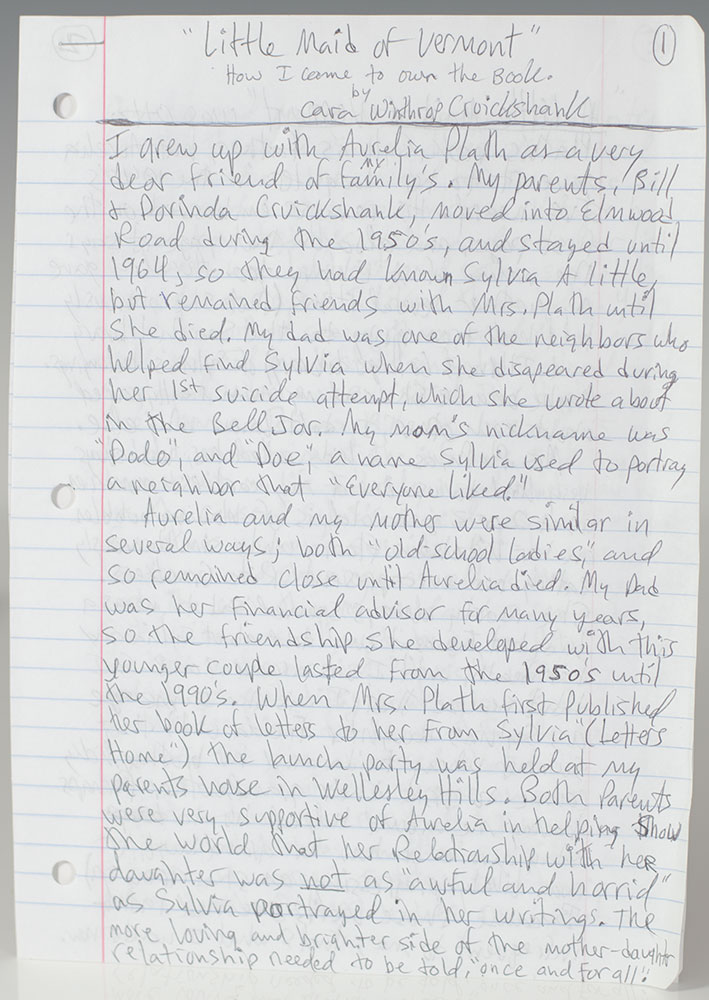 "Little Maid of Vermont"
①
How I came to own the Book.
by
Cara Winthrop Cruickshank
I grew up with Aurelia Plath as a very
dear friend of my family's. My parents, Bill
& Dorinda Cruickshank, moved into Elmwood
Road during the 1950's, and stayed until
1964, so they had known Sylvia a little,
but remained friends with Mrs. Plath until
she died. My dad was one of the neighbors who
helped find Sylvia when she disapeared during
her 1st suicide attempt, which she wrote about
in the Bell Jar. My mom's nickname was
"Dodo", and "Doe", a name Sylvia used to portray
a neighbor that "Everyone liked."
Aurelia and my mother were similar in
several ways; both "old-school ladies," and
so remained close until Aurelia died. My Dad
was her financial advisor for many years,
so the friendship she developed with this
younger couple lasted from the 1950's until
the 1990's. When Mrs. Plath first published
her book of letters to her from Sylvia "(Letters
Home") the launch party was held at my
parents house in Wellesley Hills. Both Parents
were very supportive of Aurelia in helping show
the world that her Relationship with her
daughter was not as "awful and horrid"
as Sylvia portrayed in her writings. The
more loving and brighter side of the mother-daughter
relationship needed to be told, "once and for all".